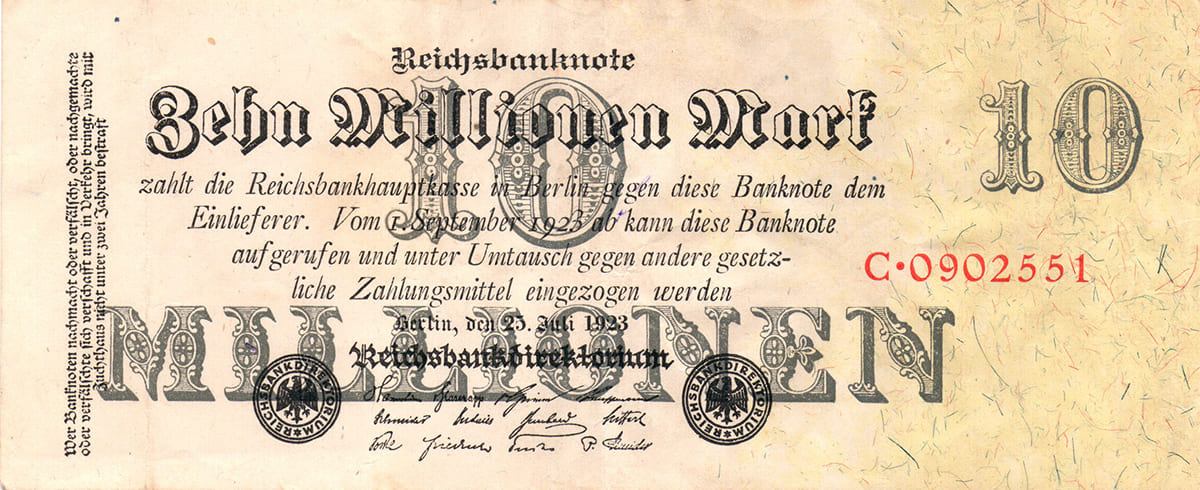 Wer Banknoten nachmacht oder verfälscht, oder nachgemachte
oder verfälschte sich verschafft und in Verkehr bringt, wird mit
Zuchthaus nicht unter zwei Jahren bestraft
Reichsbanknote
10
Zehn Millionen Mark
10
zahlt die Reichsbankhauptkasse in Berlin gegen diese Banknote dem
Einlieferer. Vom 1. September 1923 ab kann diese Banknote
aufgerufen und unter Umtausch gegen andere gesetz-
liche Zahlungsmittel eingezogen werden
C·0902551
MILLIONEN
Berlin, den 25. Juli 1923
Reichsbankdirektorium
REICHSBANKDIREKTORIUM
REICHSBANKDIREKTORIUM
Schneider